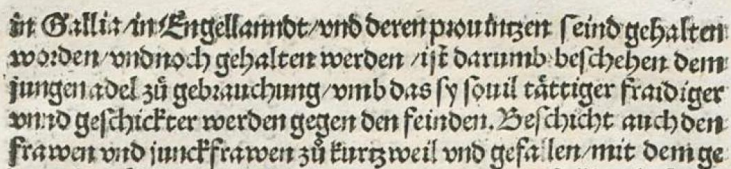 in Gallia/in Engellanndt/vnd deren prouintzen seind gehalten
worden/vnd noch gehalten werden/ist darumb beschehen dem
jungen adel zů gebrauchung/vmb das sy souil tättiger fraidiger
vnnd geschickter werden gegen den feinden. Beschicht auch den
frawen vnd junckfrawen zů kurtzweil vnd gefallen/mit dem ge